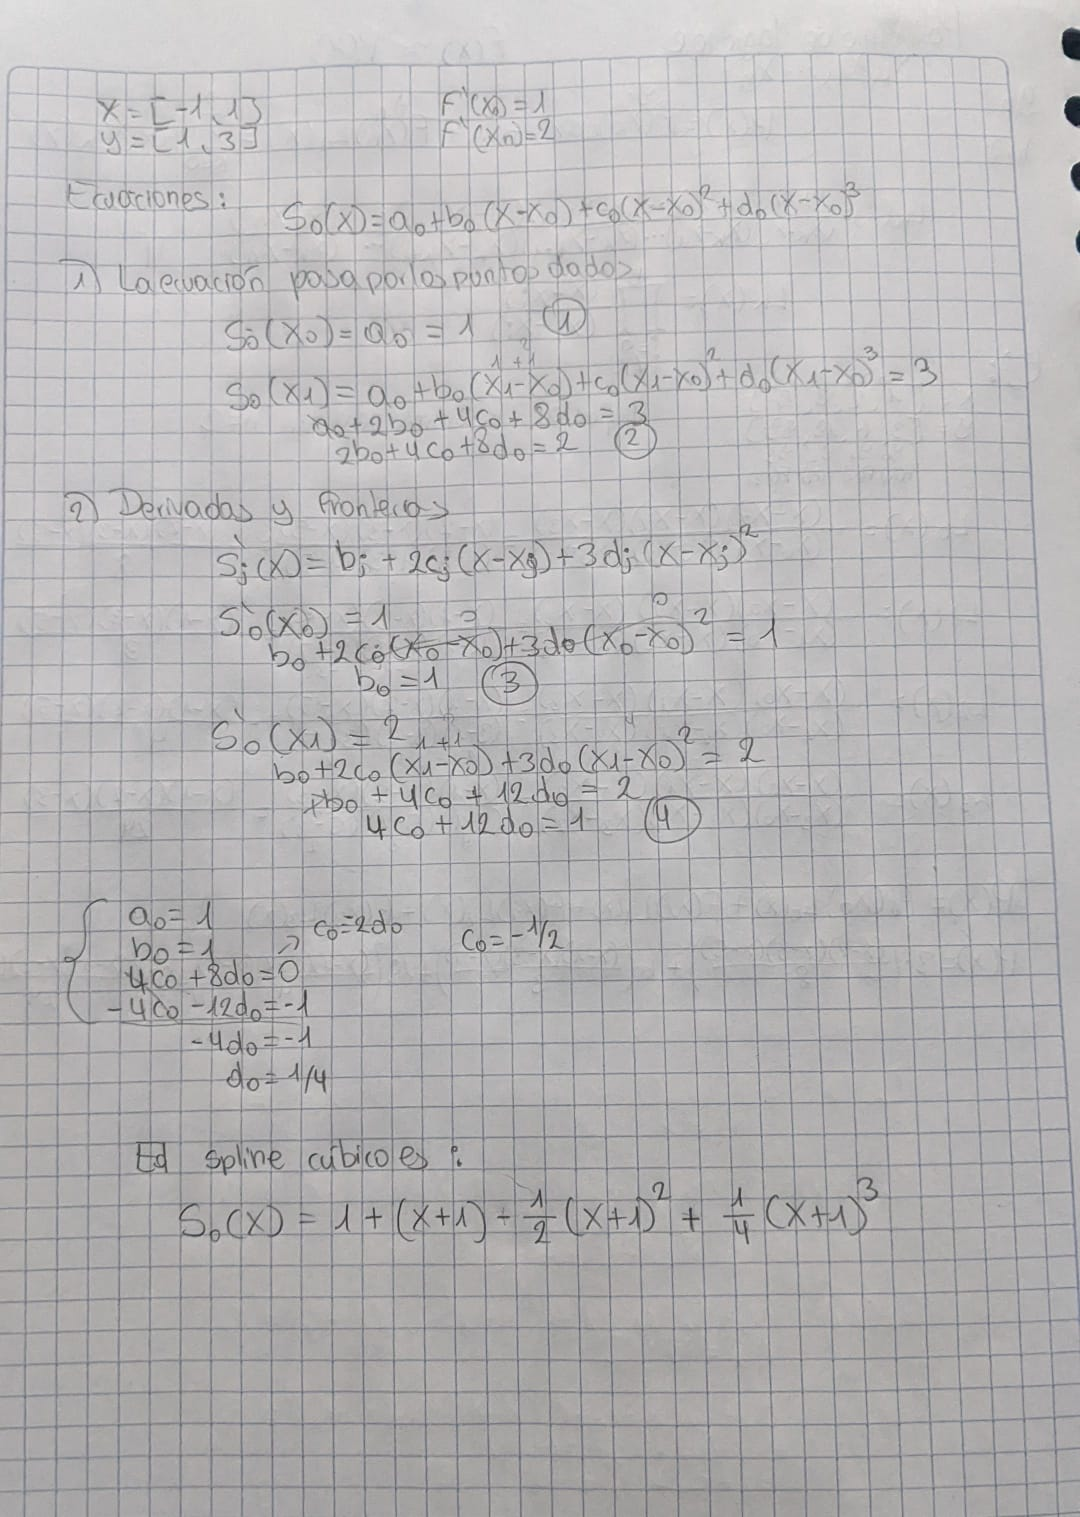 x = [-1, 1]   F'(x0) = 1
y = [1, 3]   F'(xn) = 2
Ecuaciones:
S0(x) = a0 + b0(x-x0) + c0(x-x0)² + d0(x-x0)³
1) La ecuación pasa por los puntos dados
S0(x0) = a0 = 1   ①
1+1
S0(x1) = a0 + b0(x1-x0) + c0(x1-x0)² + d0(x1-x0)³ = 3
a0 + 2b0 + 4c0 + 8d0 = 3
2b0 + 4c0 + 8d0 = 2   ②
2) Derivadas y fronteras
Sj'(x) = bj + 2cj(x-xj) + 3dj(x-xj)²
S0'(x0) = 1   0   0
b0 + 2c0(x0-x0) + 3d0(x0-x0)² = 1
b0 = 1   ③
S0'(x1) = 2   1+1   4
b0 + 2c0(x1-x0) + 3d0(x1-x0)² = 2
b0 + 4c0 + 12d0 = 2
4c0 + 12d0 = 1   ④
a0 = 1   c0 = 2d0   c0 = -1/2
b0 = 1
4c0 + 8d0 = 0
-4c0 - 12d0 = -1
-4d0 = -1
d0 = 1/4
spline cúbico es:
S0(x) = 1 + (x+1) - 1/2 (x+1)² + 1/4 (x+1)³